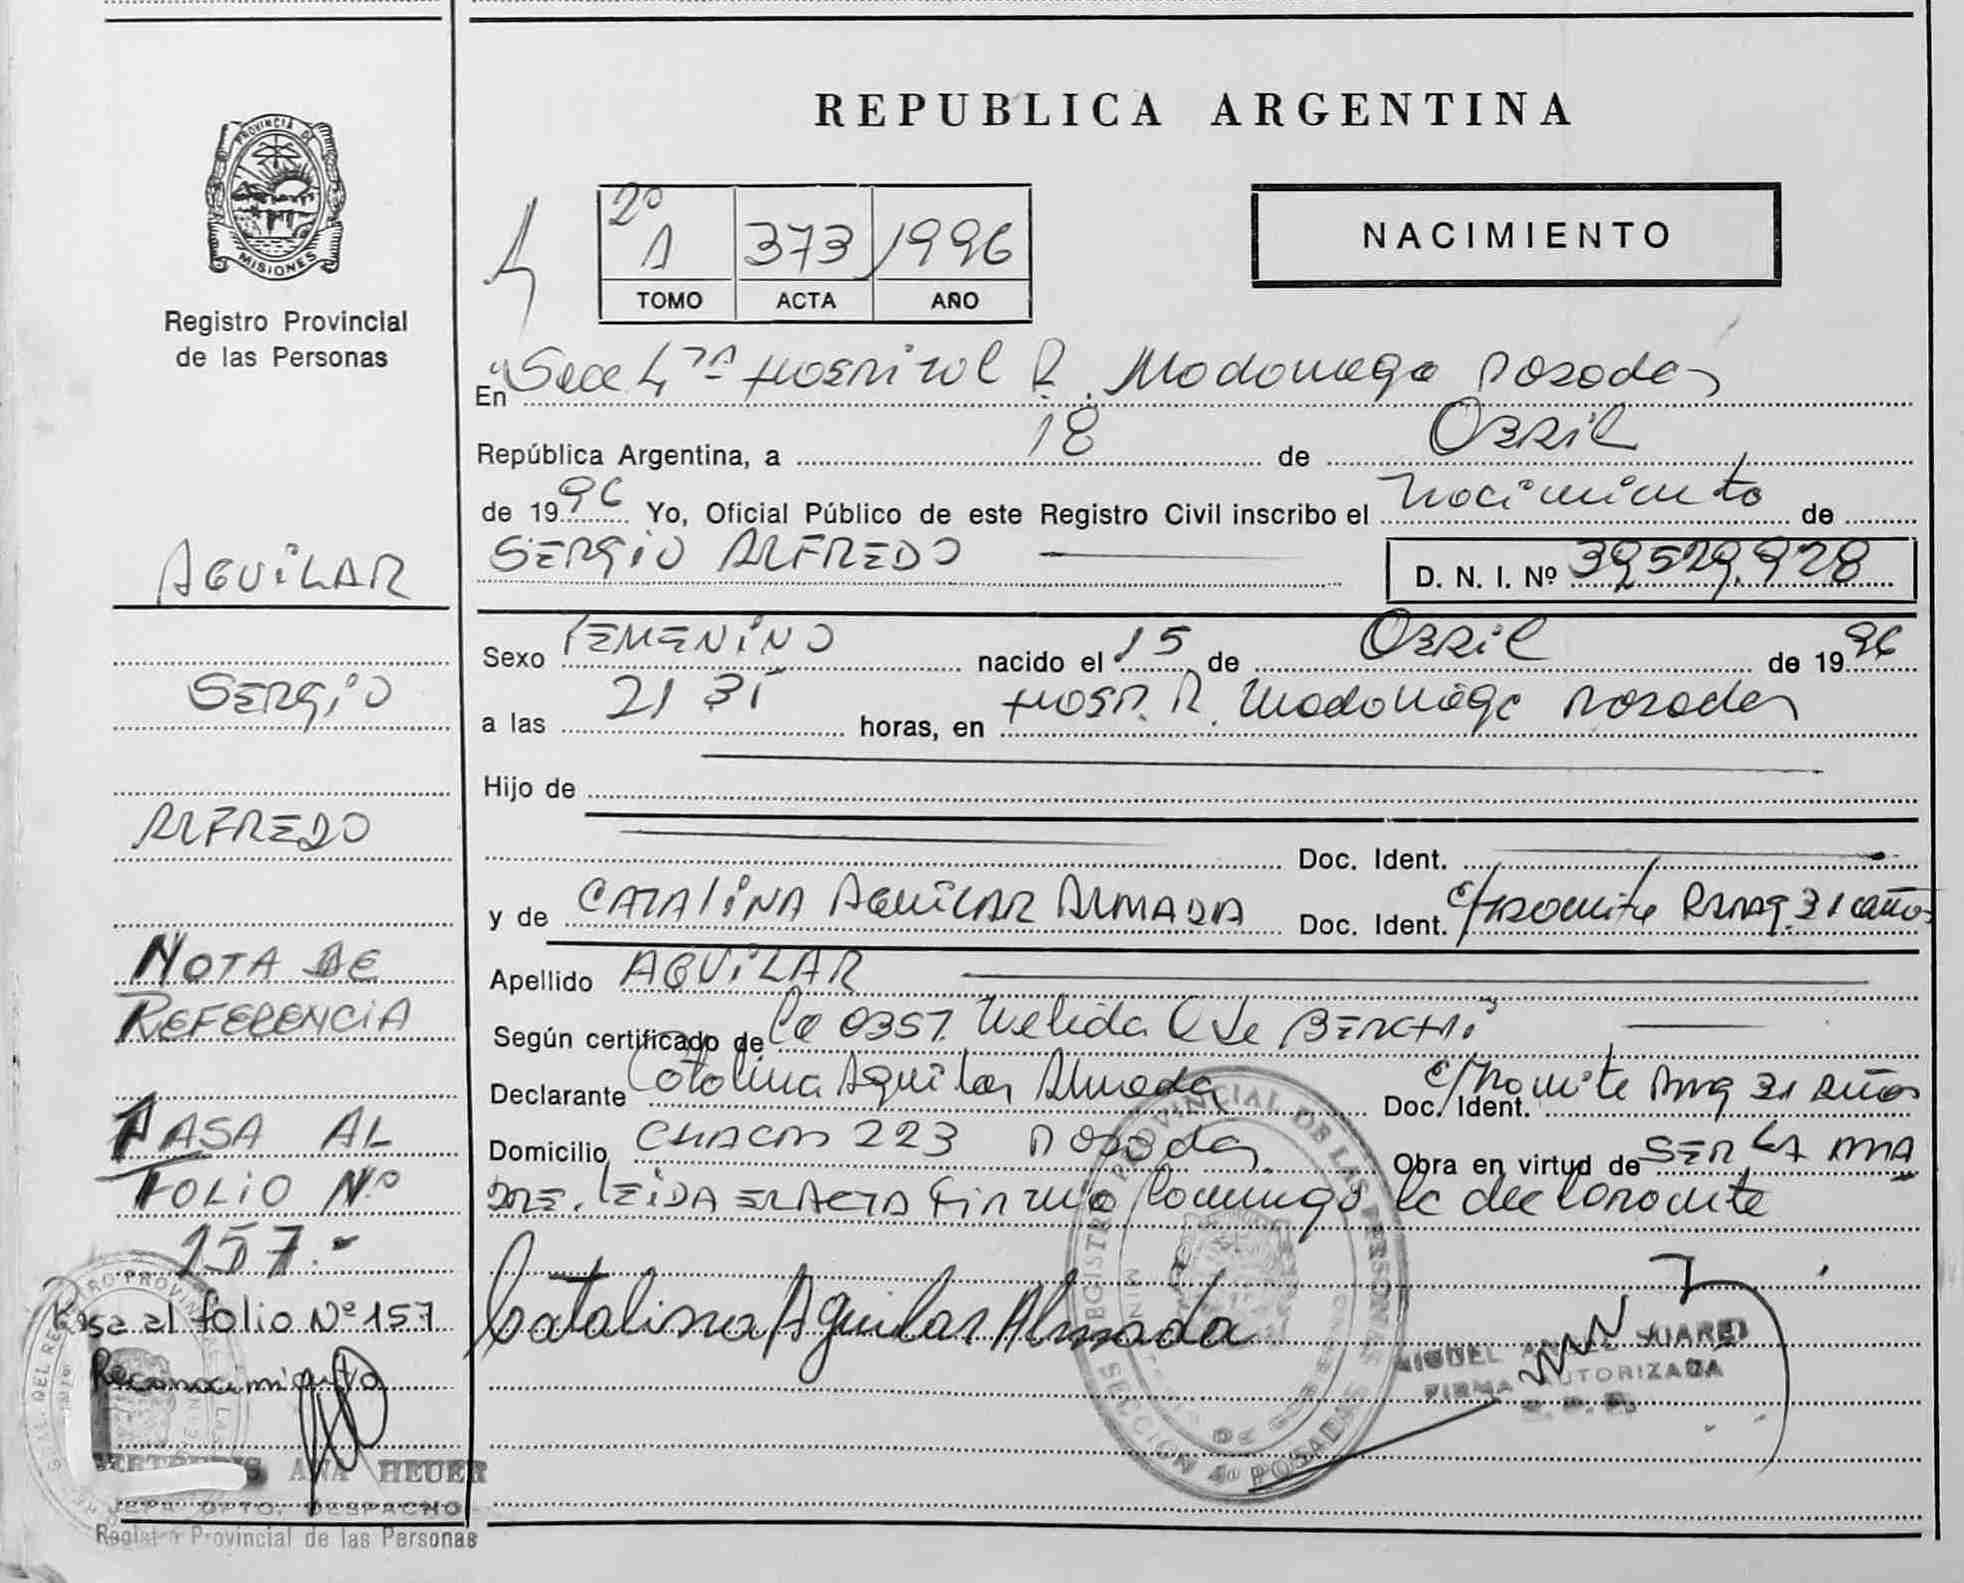 REPUBLICA ARGENTINA
PROVINCIA DE
MISIONES
Registro Provincial
de las Personas
2º
A 373 1996
TOMO ACTA AÑO
NACIMIENTO
En Secc 4ta Hospital R. Madariaga Posadas
República Argentina, a 18 de Abril
de 1996 Yo, Oficial Público de este Registro Civil inscribo el Nacimiento de
SERGIO ALFREDO
D. N. I. Nº 39.529.928
Sexo FEMENINO nacido el 15 de Abril de 1996
a las 21 35 horas, en Hosp. R. Madariaga Posadas
Hijo de
Doc. Ident.
y de CATALINA AGUILAR ALMADA Doc. Ident. 31 años
Apellido AGUILAR
Según certificado de La Obst. Nelida de
Declarante Catalina Aguilar Almada Doc. Ident. 31 años
Domicilio CHACAS 223 Posadas Obra en virtud de SER LA MA
DRE. LEIDA EL ACTA Firma Conmigo la declarante
Catalina Aguilar Almada
REGISTRO PROVINCIAL DE LAS PERSONAS
SECCION 4a POSADAS
MIGUEL SUAREZ
FIRMA AUTORIZADA
AGUILAR
SERGIO
ALFREDO
NOTA DE
REFERENCIA
PASA AL
FOLIO Nº
157.-
Pasa al folio Nº 157
Reconocimiento
ANA HEUER
JEFA DPTO. DESPACHO
Registro Provincial de las Personas